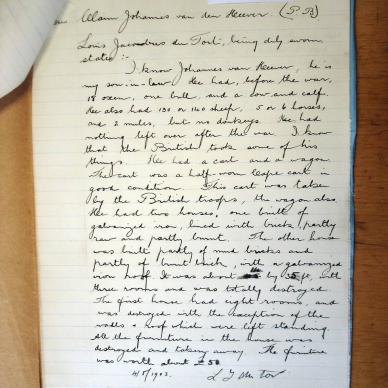 Claim Johannes van den Heever. (P.R)
Louis Jacobus du Toit, being duly sworn
states :-
I know Johannes van Heever, he is
my son-in-law. He had, before the war,
18 oxen, one bull, and a cow and calf.
He also had 130 or 140 sheep, 5 or 6 horses,
and 2 mules, but no donkeys. He had
nothing left over after the war. I know
that the British took some of his
things. He had a cart and a wagon.
The cart was a half-worn cape cart in
good condition. This cart was taken
by the British troops, the wagon also.
He had two houses, one built of
galvanized iron, lined with brick partly
raw and partly burnt. The other house
was built partly of mud bricks and
partly of burnt brick, with a galvanized
iron roof. It was about by ft, with
three rooms and was totally destroyed.
The first house had eight rooms, and
was destroyed with the exception of the
walls & roof which were left standing.
All the furniture in the house was
destroyed and taken away. The furniture
was worth about £50
4/5/1903. L J du Toit